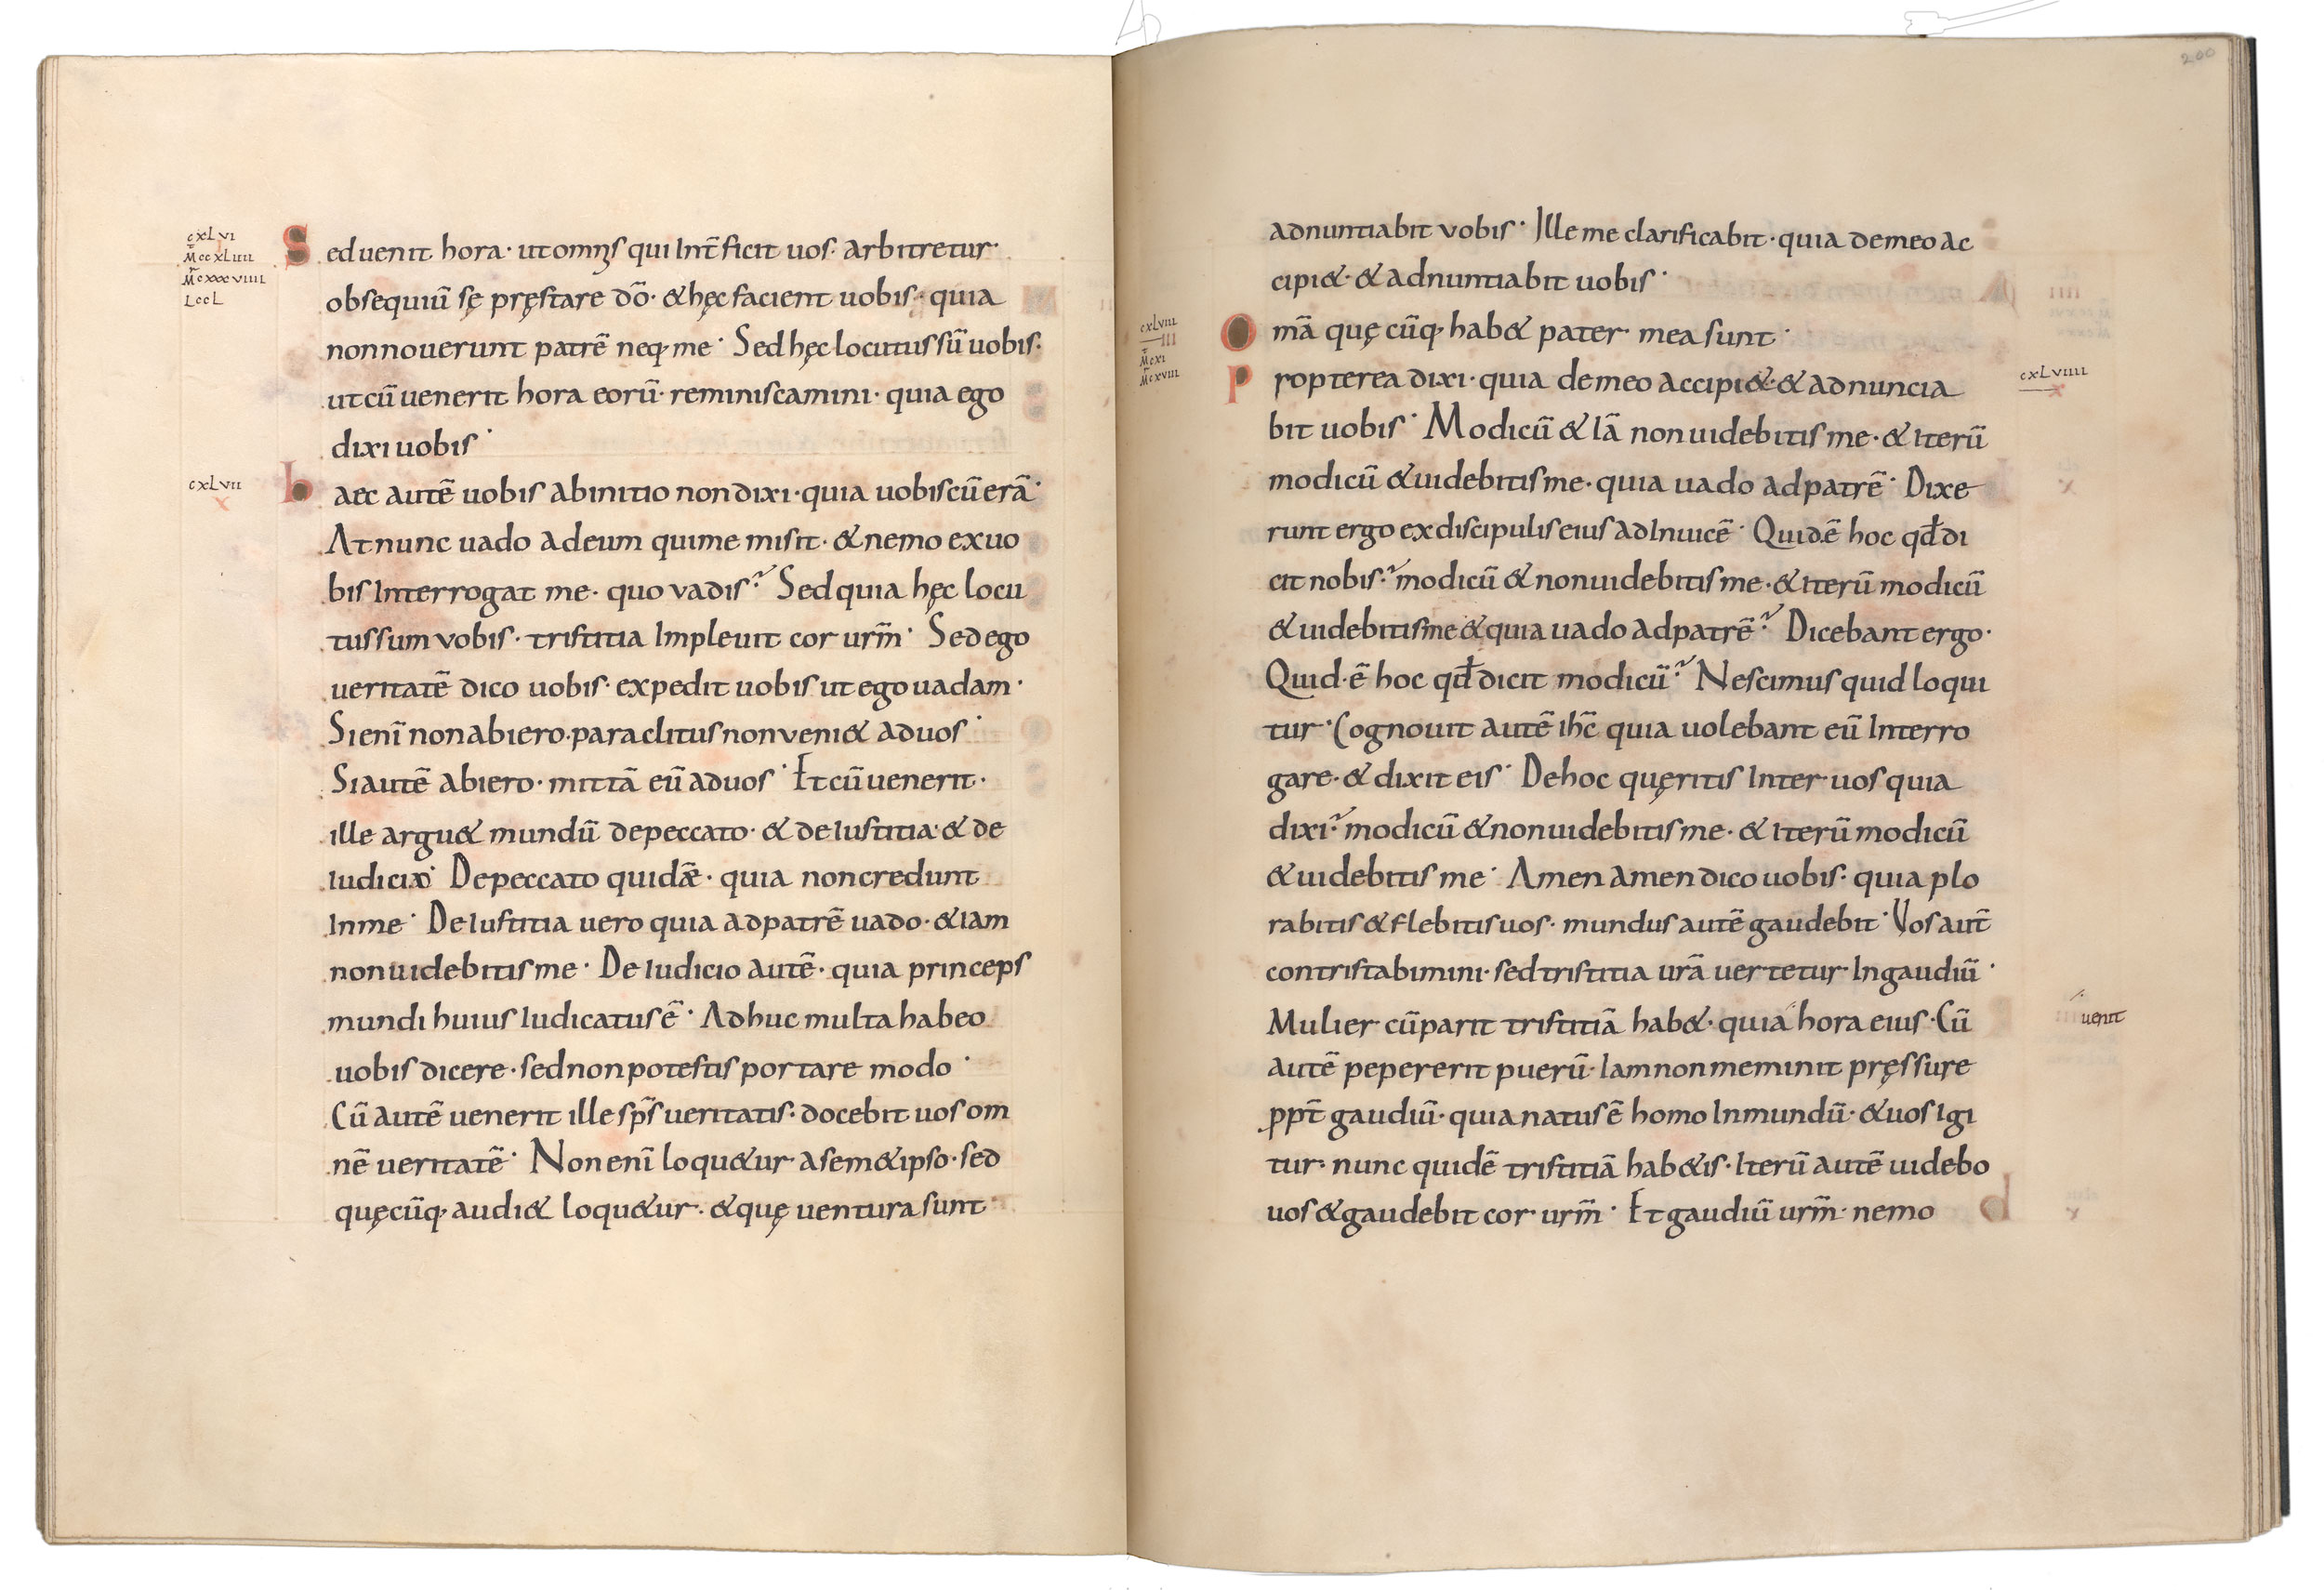 cxLvi
M̄ccxLiiii
M̄cxxxviiii
LccL
Sed uenit hora· ut omnꝫs qui Int̄ficit uos· arbitretur·
obsequiū sę pręstare dō· & hęc facient uobis· quia
non nouerunt patrē neq· me· Sed hęc locutus sū uobis·
ut cū uenerit hora eorū· reminiscamini· quia ego
dixi uobis·
cxLvii
x
haec autē uobis ab initio non dixi· quia uobiscū erā·
At nunc uado ad eum qui me misit· & nemo ex uo
bis Interrogat me· quo vadis? Sed quia hęc locu
tus sum vobis· tristitia Impleuit cor ur̄m· Sed ego
ueritatē dico uobis· expedit uobis ut ego uadam·
Si enī non abiero· paraclitus non veni& ad uos·
Si autē abiero· mittā eū ad uos· Et cū uenerit·
ille argu& mundū de peccato· & de Iustitia· & de
Iudicio· De peccato quidē· quia non credunt
In me· De Iustitia uero quia ad patrē uado· & Iam
non uidebitis me· De Iudicio autē· quia princeps
mundi huius Iudicatus ē· Adhuc multa habeo
uobis dicere· sed non potestis portare modo·
Cū autē uenerit ille sp̄s ueritatis· docebit uos om
nē ueritatē· Non enī loqu&ur a sem&ipso· sed
quęcūq· audi& loqu&ur· & quę uentura sunt
200
adnuntiabit vobis· Ille me clarificabit· quia de meo ac
cipi&· & adnuntiabit uobis·
cxLviii
iii
M̄cxi
M̄cxviii
Omā quęcūq· hab& pater mea sunt·
Propterea dixi· quia de meo accipi&· & adnuncia
cxLviiii
x
bit uobis· Modicū & Iā non uidebitis me· & Iterū
modicū & uidebitis me· quia uado ad patrē· Dixe
runt ergo ex discipulis eius ad Inuicē· Quid ē hoc qđ di
cit nobis·? modicū & non uidebitis me· & Iterū modicū
& uidebitis me & quia uado ad patrē? Dicebant ergo·
Quid· ē hoc qđ dicit modicū? Nescimus quid loqui
tur· Cognouit autē ih̄c quia uolebant eū Interro
gare· & dixit eis· De hoc quęritis Inter uos quia
dixi? modicū & non uidebitis me· & Iterū modicū
& uidebitis me· Amen amen dico uobis· quia plo
rabitis & flebitis uos· mundus autē gaudebit· Vos aut̄
contristabimini· sed tristitia urā uertetur In gaudiū·
Mulier cū parit tristitiā hab&· quia hora eius· Cū
uenit
autē pepererit puerū· Iam non meminit pręssure
ppt̄ gaudiū· quia natus ē homo In mundū· & uos Igi
tur· nunc quidē tristitiā hab&is· Iterū autē uidebo
uos & gaudebit cor ur̄m· Et gaudiū ur̄m nemo